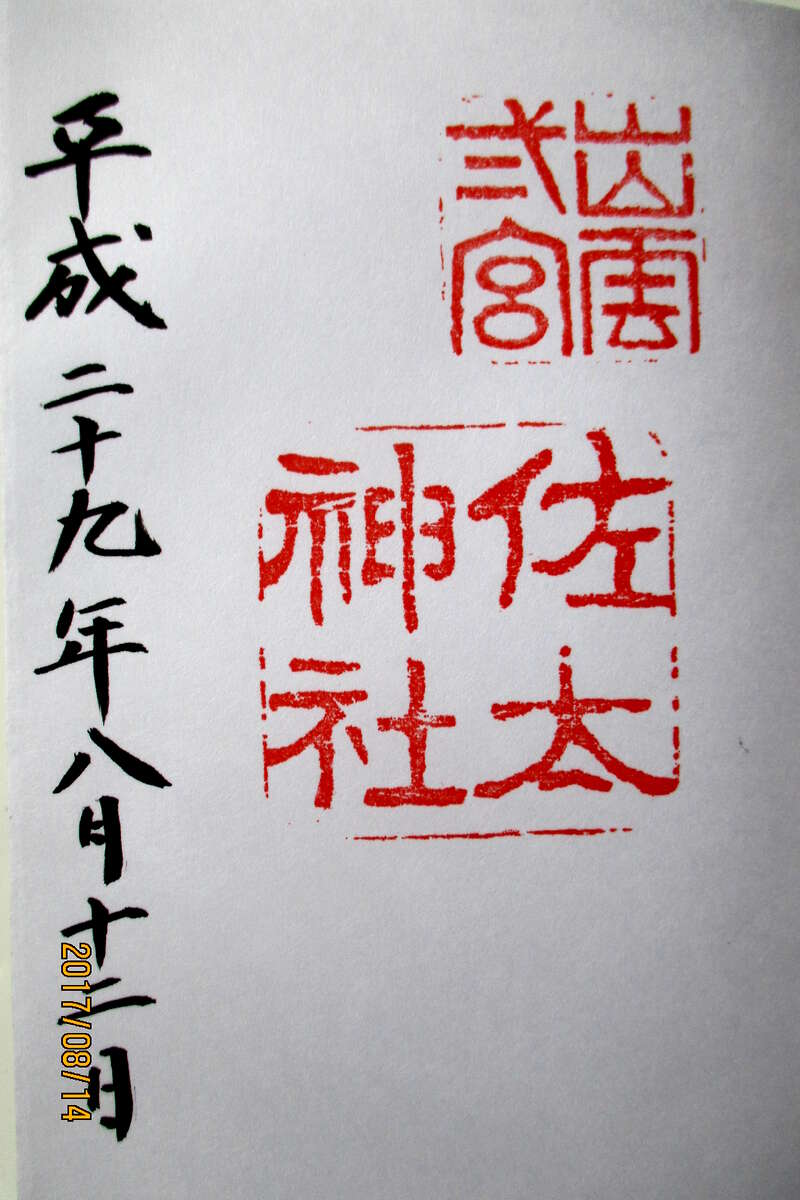 出雲
弍宮
佐太
神社
平成二十九年八月十二日
2017/08/14